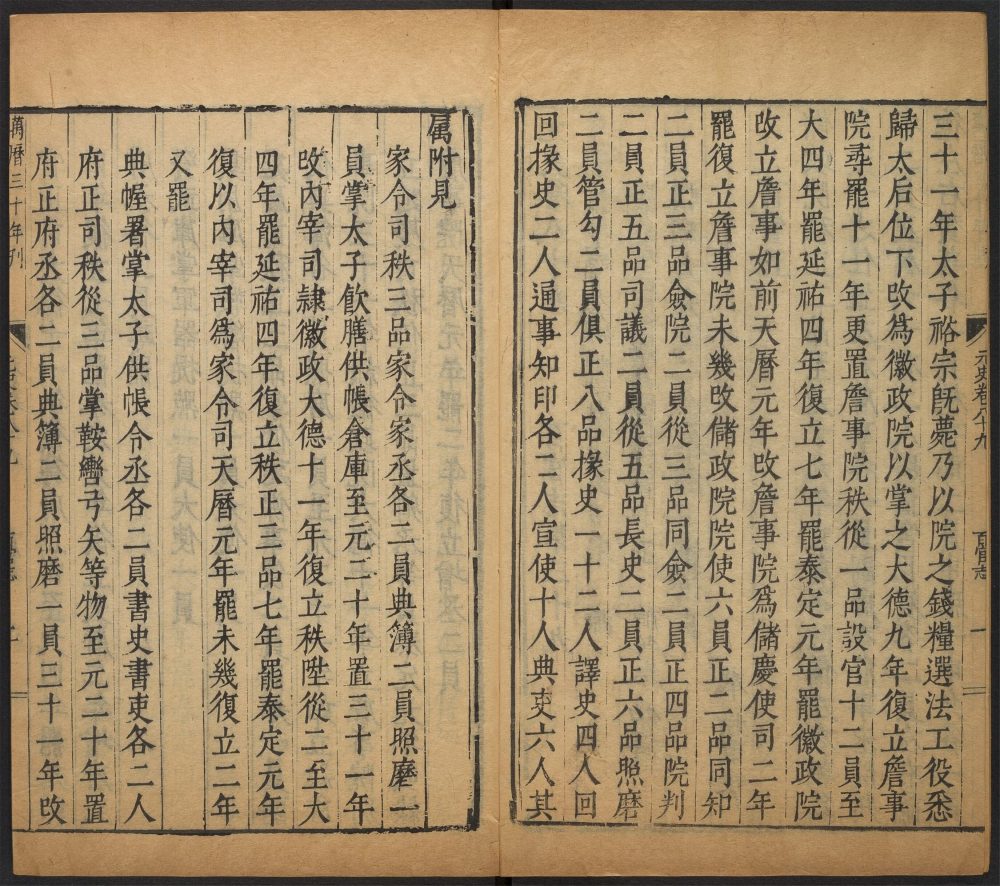 元史卷八十九　百官志　一
三十一年太子裕宗旣薨乃以院之錢糧選法工役悉
歸太后位下改爲徽政院以掌之大德九年復立詹事
院尋罷十一年更置詹事院秩從一品設官十二員至
大四年罷延祐四年復立七年罷泰定元年罷徽政院
改立詹事如前天曆元年改詹事院爲儲慶使司二年
罷復立詹事院未幾改儲政院院使六員正二品同知
二員正三品僉院二員從三品同僉二員正四品院判
二員正五品司議二員從五品長史二員正六品照磨
二員管勾二員俱正八品掾史一十二人譯史四人回
回掾史二人通事知印各二人宣使十人典吏六人其
屬附見
家令司秩三品家令家丞各二員典簿二員照磨一
員掌太子飮膳供帳倉庫至元二十年置三十一年
改內宰司隷徽政大德十一年復立秩陞從二至大
四年罷延祐四年復立秩正三品七年罷泰定元年
復以內宰司爲家令司天曆元年罷未幾復立二年
又罷
典幄署掌太子供帳令丞各二員書史書吏各二人
府正司秩從三品掌鞍轡弓矢等物至元二十年置
府正府丞各二員典簿二員照磨二員三十一年改
萬曆三十年刋